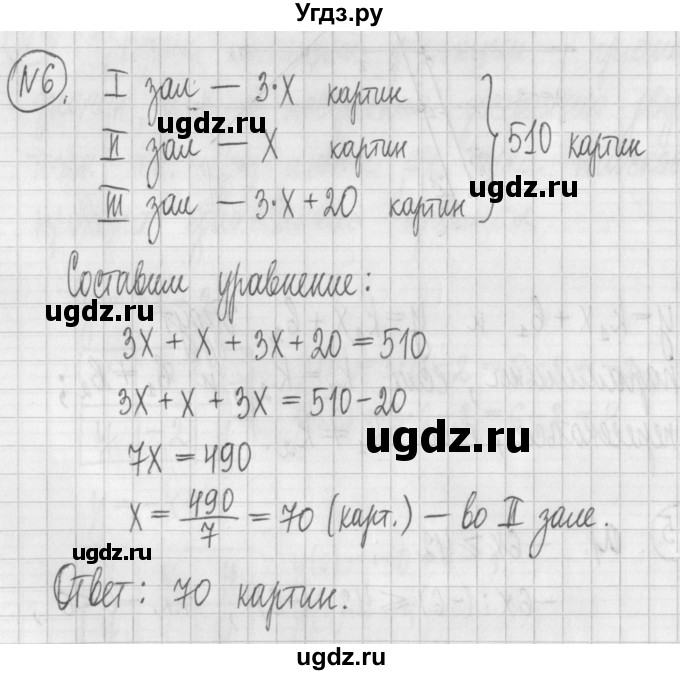 Угдз.ру
№6. I зал — 3·X картин
ugdz.ru
II зал — X картин
510 картин
ugdz.ru
III зал — 3·X + 20 картин
Составим уравнение:
ugdz.ru
3X + X + 3X + 20 = 510
3X + X + 3X = 510 - 20
ugdz.ru
7X = 490
X = 490/7 = 70 (карт.) — во II зале.
ugdz.ru
Ответ: 70 картин.
ugdz.ru
ugdz.ru